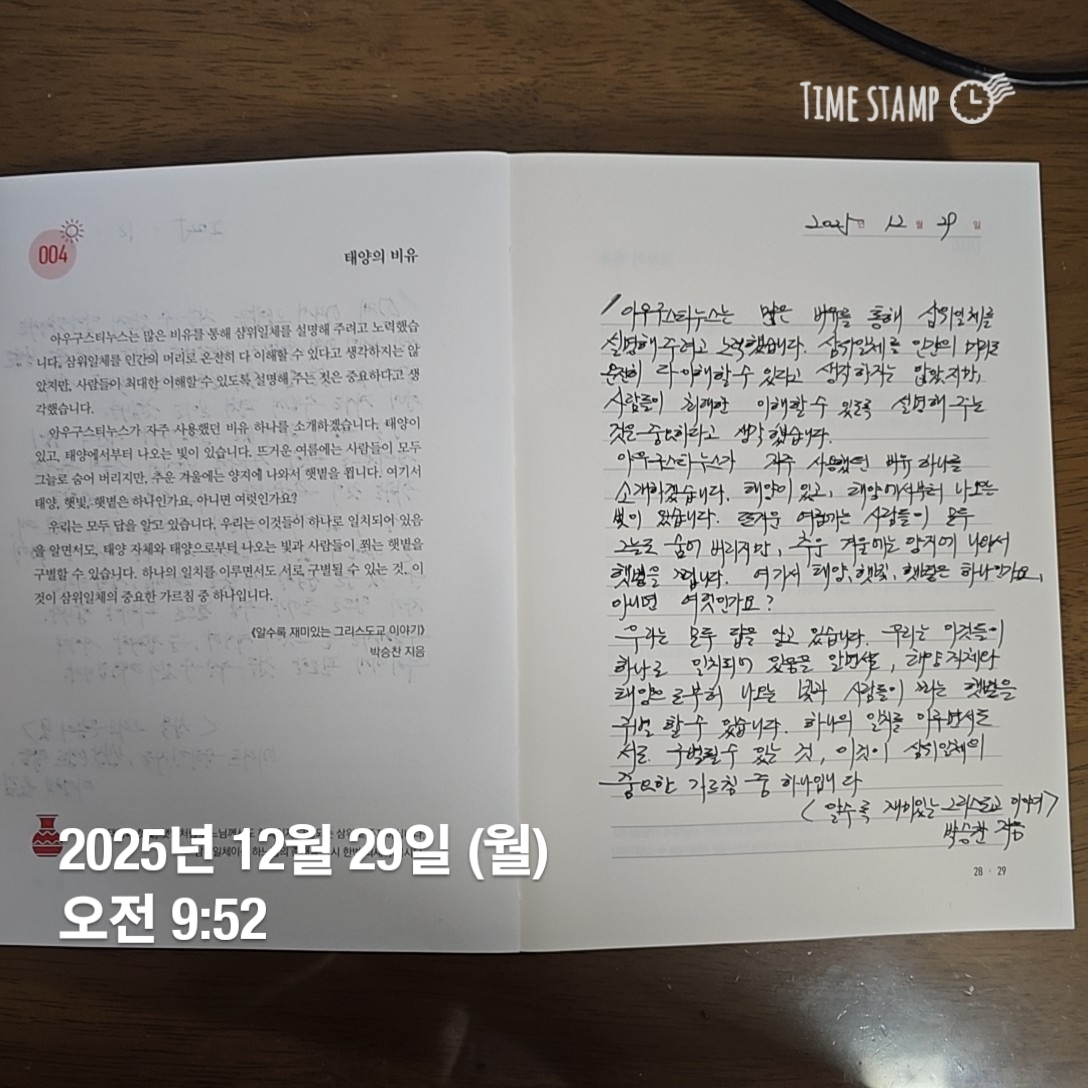 TIME STAMP
004
태양의 비유
아우구스티누스는 많은 비유를 통해 삼위일체를 설명해 주려고 노력했습
니다. 삼위일체를 인간의 머리로 온전히 다 이해할 수 있다고 생각하지는 않
았지만, 사람들이 최대한 이해할 수 있도록 설명해 주는 것은 중요하다고 생
각했습니다.
아우구스티누스가 자주 사용했던 비유 하나를 소개하겠습니다. 태양이
있고, 태양에서부터 나오는 빛이 있습니다. 뜨거운 여름에는 사람들이 모두
그늘로 숨어 버리지만, 추운 겨울에는 양지에 나와서 햇볕을 쬡니다. 여기서
태양, 햇빛, 햇볕은 하나인가요, 아니면 여럿인가요?
우리는 모두 답을 알고 있습니다. 우리는 이것들이 하나로 일치되어 있음
을 알면서도, 태양 자체와 태양으로부터 나오는 빛과 사람들이 쬐는 햇볕을
구별할 수 있습니다. 하나의 일치를 이루면서도 서로 구별될 수 있는 것, 이
것이 삼위일체의 중요한 가르침 중 하나입니다.
《알수록 재미있는 그리스도교 이야기》
박승찬 지음
2025년 12월 29일
아우구스티누스는 많은 비유를 통해 삼위일체를
설명해 주려고 노력했습니다. 삼위일체를 인간의 머리로
온전히 다 이해할 수 있다고 생각하지는 않았지만,
사람들이 최대한 이해할 수 있도록 설명해 주는
것은 중요하다고 생각했습니다.
아우구스티누스가 자주 사용했던 비유 하나를
소개하겠습니다. 태양이 있고, 태양에서부터 나오는
빛이 있습니다. 뜨거운 여름에는 사람들이 모두
그늘로 숨어 버리지만, 추운 겨울에는 양지에 나와서
햇볕을 쬡니다. 여기서 태양, 햇빛, 햇볕은 하나인가요,
아니면 여럿인가요?
우리는 모두 답을 알고 있습니다. 우리는 이것들이
하나로 일치되어 있음을 알면서도, 태양 자체와
태양으로부터 나오는 빛과 사람들이 쬐는 햇볕을
구별 할 수 있습니다. 하나의 일치를 이루면서도
서로 구별될 수 있는 것, 이것이 삼위일체의
중요한 가르침 중 하나입니다
<알수록 재미있는 그리스도교 이야기>
박승찬 지음
28 · 29
2025년 12월 29일 (월)
오전 9:52